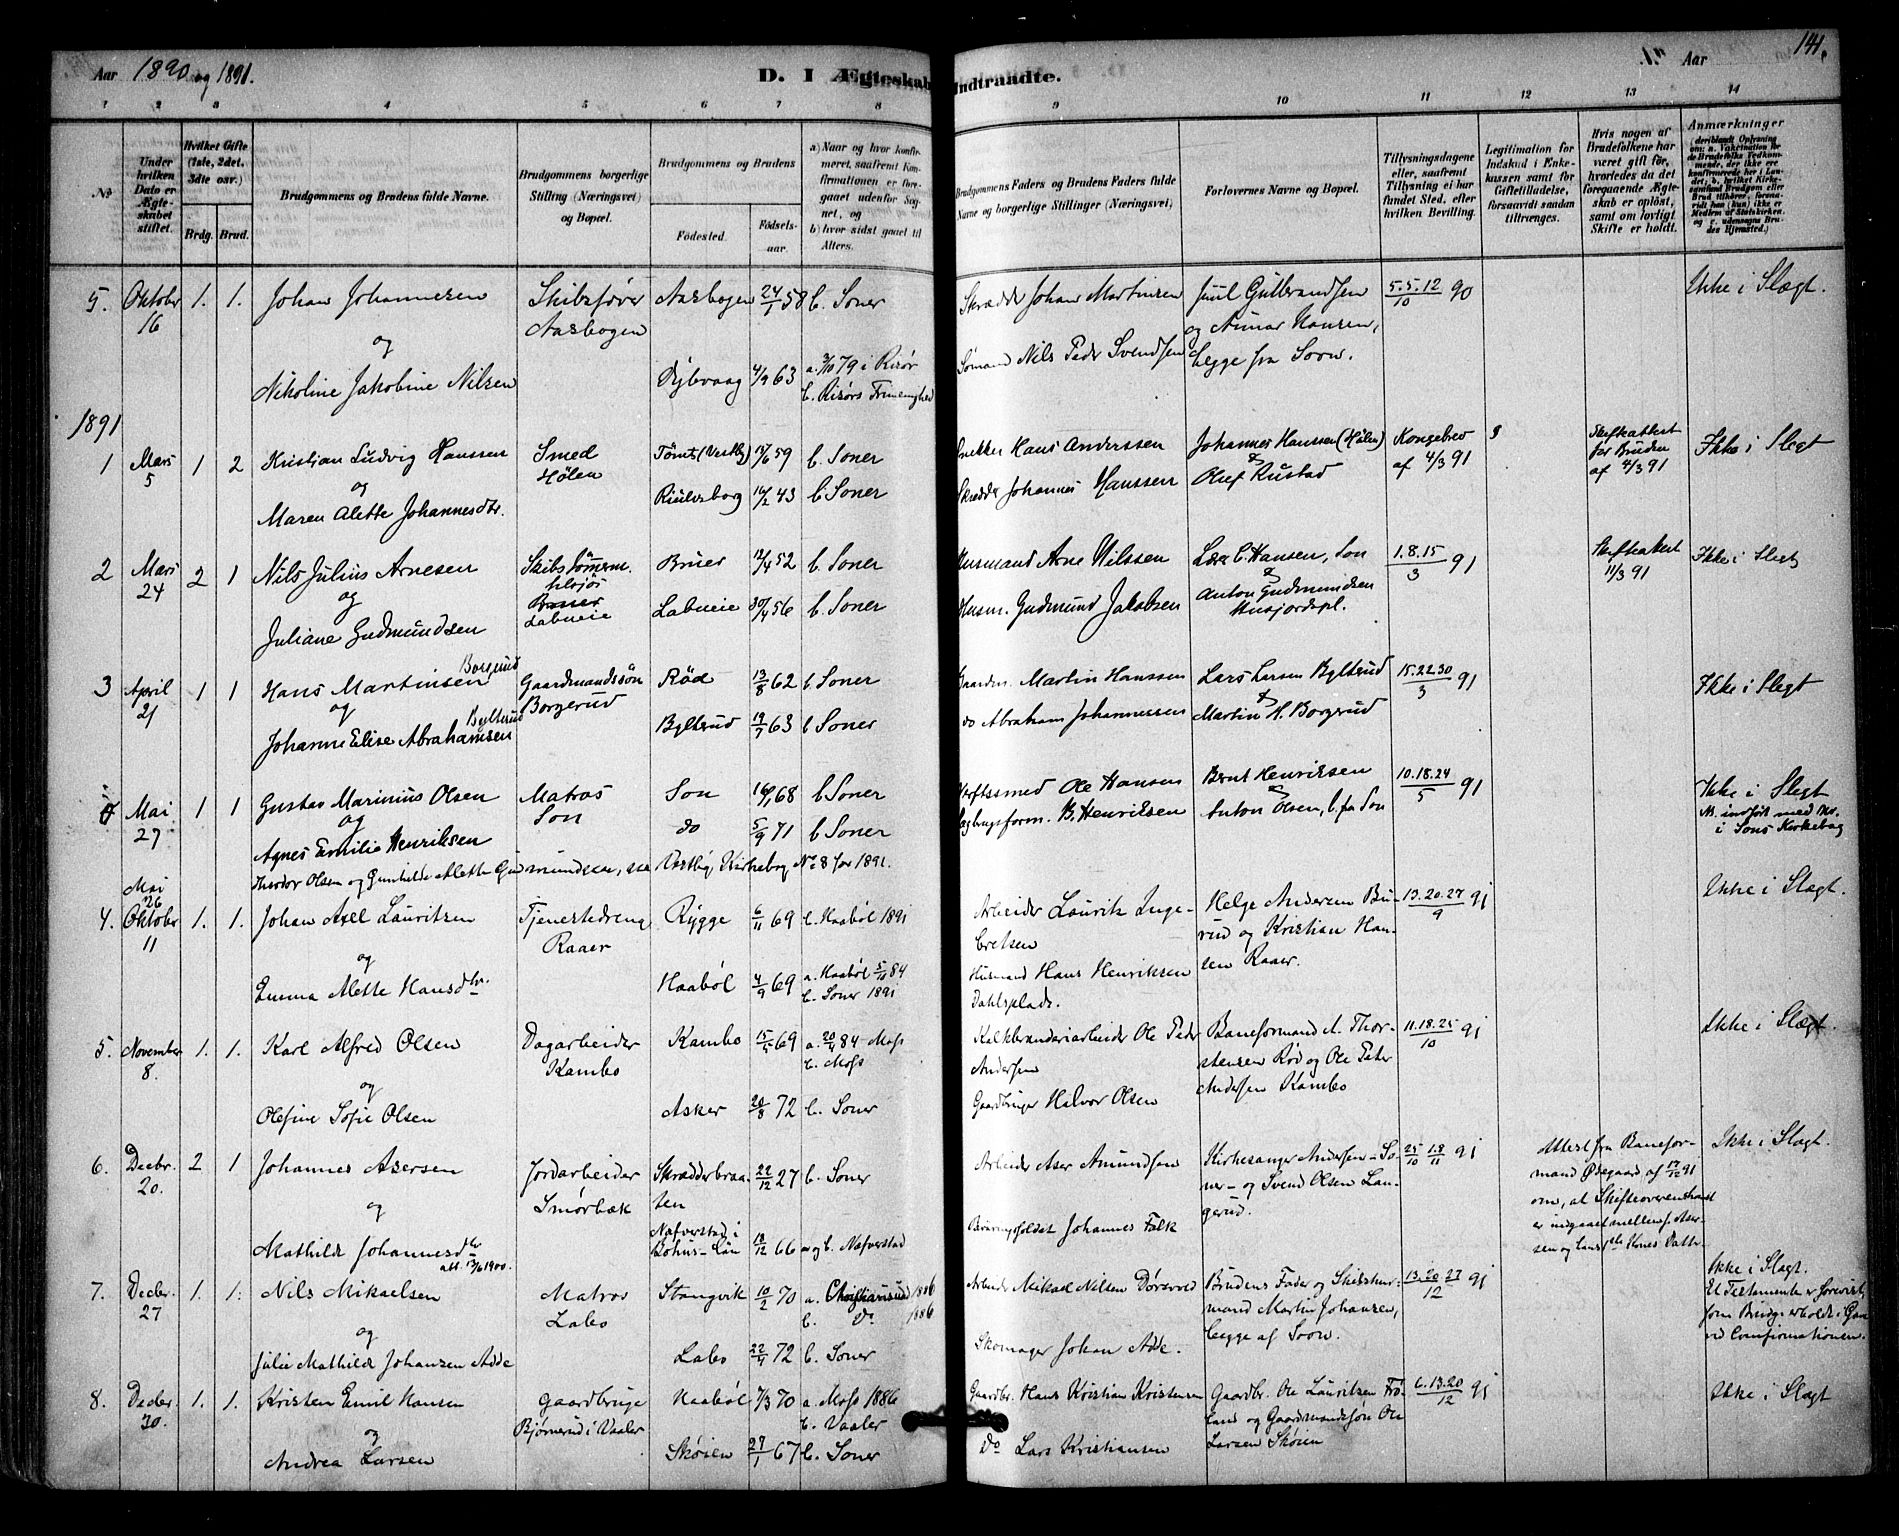 Aar 1890 og 1891.
D. I Ægteskab Indtraadte.
Aar
141.
1 2 3 4 5 6 7 8 9 10 11 12 13 14
No
Under hvilken Dato er Ægteskabet stiftet.
Hvilket Gifte (1ste, 2det, 3die osv.)
Brdg. Brud.
Brudgommens og Brudens fulde Navne.
Brudgommens borgerlige Stilling (Næringsvei) og Bopæl.
Brudgommens og Brudens
Fødested. Fødselsaar.
a) Naar og hvor konfirmeret, saafremt Konfirmationen er foregaaet udenfor Sognet, og
b) hvor sidst gaaet til Alters.
Brudgommens Faders og Brudens Faders fulde Navne og borgerlige Stillinger (Næringsvei)
Forlovernes Navne og Bopæl.
Tillysningsdagene eller, saafremt Tillysning ei har fundet Sted, efter hvilken Bevilling.
Legitimation for Indskud i Enkekassen samt for Giftetilladelse, forsaavidt saadan tiltrænges.
Hvis nogen af Brudefolkene har været gift før, hvorledes da det foregaaende Ægteskab er opløst, samt om lovligt Skifte er holdt.
Anmærkninger
5. Oktober 16 1. 1. Johan Johannesen Skibsfører Aasbogen Aasbogen 24/1 58 b. Soner Skrædder Johan Martinsen Juul Gulbrandsen 5.5.12/10 90 Ikke i Slægt.
og og Hansen,
Nikoline Jakobine Nilsen Dybvaag 4/9 63 a. 3/10 79 i Risør Sømand Nils Peder Svendsen begge fra Soon.
b. Risørs Frimenighed
1891
1 Mars 5 1 2 Kristian Ludvig Hanssen Smed Hølen (Vestby) 59 b. Soner Snekker Hans Anderssen Johannes Hanssen (Hølen) Kongebrev af 4/3 91 Skifteattest for Bruden af 4/3 91 Ikke i Slegt
og &
Maren Alette Johannesdtr. 16/2 43 b Soner Skrædder Johannes Hanssen Olaf Rustad
2 Mars 24 2 1 Nils Julius Arnesen Skibstømmerm. Labueie Bruer 12/4 52 b. Soner Husmand Arne Nilssen Hansen, Son 1.8.15/3 91 Skifteattest 11/3 91 Ikke i Slegt
og &
Juliane Gudmundsen Labueie 30/4 56 b. Soner Husm. Gudmund Jakobsen Anton Gudmundsen
3 April 21 1 1 Hans Martinsen Borgerud Gaardmandssøn Borgerud Rød 13/8 62 b. Soner Gaardm. Martin Hanssen Lars Larsen Bylterud 15.22.30/3 91 Ikke i Slegt
og &
Johanne Elise Abrahamsen Bylterud Bylterud 19/7 63 b Soner do Abraham Johannessen Martin H. Borgerud
Mai 27 1 1 Gustav Marinius Olsen Matros Son Son 68 b Soner Ole Hansen Bernt Henriksen 10.18.24/5 91 Ikke i Slegt
og & i Sons Kirkebog
Agnes Emilie Henriksen do 5/9 71 b Soner B. Henriksen Anton Olsen, b. fra Son
Mai 26 Theodor Olsen og Gunhilde Alette Gudmundsen, se Vestby Kirkebog No 8 for 1891.
4. Oktober 11 1. 1. Johan Axel Lauritsen Tjenestedreng Raaer Rygge 6/11 69 b. Haabøl 1891 Arbeider Laurits Ingebretsen Helge Andersen Burud og Kristian Hansen Raaer. 13.20.27/9 91 Ikke i Slægt.
og
Emma Alette Hansdtr. Haabøl 4/9 69 a. Haabøl 5/10 84 b. Soner 1891 Husmand Hans Henriksen Dahlsplads.
5. November 8. 1. 1. Karl Alfred Olsen Dagarbeider Kambo Kambo 15/5 69 a. 20/4 84 Moss b. Moss Kalkbrænderiarbeider Ole Peder Andersen Baneformand A. Thorstensen Rød og Ole Peter Andersen Kambo 11.18.25/10 91 Ikke i Slægt.
og
Olefine Sofie Olsen Asker 20/8 72 b. Soner Gaardbruger Halvor Olsen
6. Decbr. 20. 2 1 Johannes Asersen Jordarbeider Smørbæk Skrædderbraaten 22/12 27 b. Soner Arbeider Aser Amundsen Kirkesanger Andersen - Soner - og Svend Olsen Langerud. 25/10 1.8/11 91 Attest fra Baneformand Ødegaard af 17/12 91 om, at Skifteoverenskomst er indgaaet mellem J. Asersen og hans Ikke i Slagt.
og
Mathilde Johannesdtr. att. 13/6 1900. Nafverstad i Bohus-Län 18/12 66 a og b. Nafverstad Johannes Falk
7. Decbr. 27 1. 1. Nils Mikaelsen Matros Labo Stangvik 10/2 70 a. Christiansund 1886 b. Do 1886 Arbeider Mikael Nilsen Brudens Fader og Martin Johansen, begge af Soon. 13.20.27/12 91 Ikke i Slagt.
og
Julie Mathilde Johansen Adde Labo 22/4 72 b. Soner Skomager Johan Adde.
8. Decbr. 30. 1. 1. Kristen Emil Hansen Gaardbruger Bjørnerud i Vaaler Haabøl 7/3 70 a. Moss 1886 b. Vaaler Gaardbr. Hans Kristian Kristensen Gaardbr. Ole Lauritsen Frøland og Gaardmandssøn Ole Larsen Skøien 6.13.20/12 91 Ikke i Slagt
og
Andrea Larsen Skøien 27/1 67 b. Soner Do Lars Kristiansen